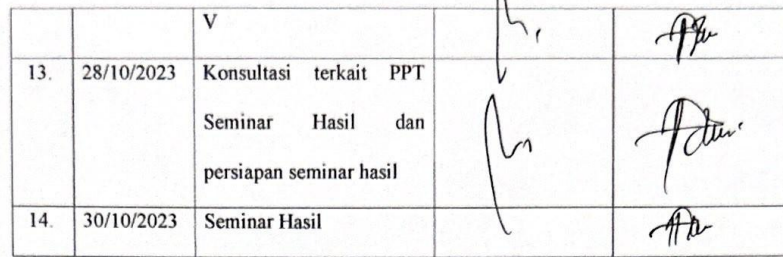 V
13. 28/10/2023 Konsultasi terkait PPT
Seminar Hasil dan
persiapan seminar hasil
14. 30/10/2023 Seminar Hasil